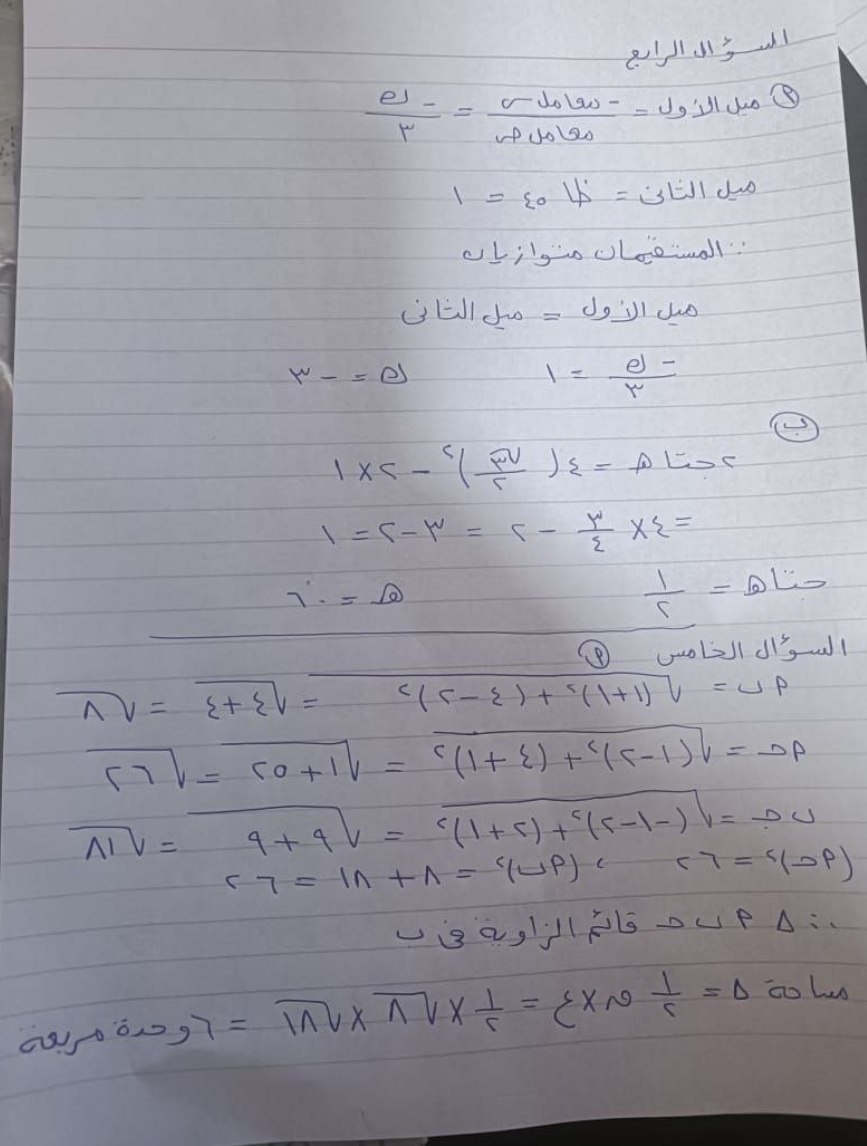 السؤال الرابع
(أ) ميل الأول = -معامل س / معامل ص = -ك / ٣
ميل الثانى = ظا ٤٥ = ١
∵ المستقيمان متوازيان
ميل الأول = ميل الثانى
-ك / ٣ = ١ ك = -٣
(ب)
٢ جتا هـ = ٤(√٣ / ٢)² - ٢ × ١
= ٤ × ٣ / ٤ - ٢ = ٣ - ٢ = ١
جتا هـ = ١ / ٢ هـ = ٦٠°
السؤال الخامس (أ)
أ ب = √(١+١)² + (٤-٢)² = √٤+٤ = √٨
أ حـ = √(١-٢)² + (٤+١)² = √١+٢٥ = √٢٦
ب حـ = √(-١-٢)² + (٢+١)² = √٩+٩ = √١٨
(أ حـ)² = ٢٦ ، (أ ب)² = ٨ + ١٨ = ٢٦
∴ Δ أ ب حـ قائم الزاوية فى ب
مساحة Δ = ١ / ٢ ق × ع = ١ / ٢ × √٨ × √١٨ = ٦ وحدة مربعة